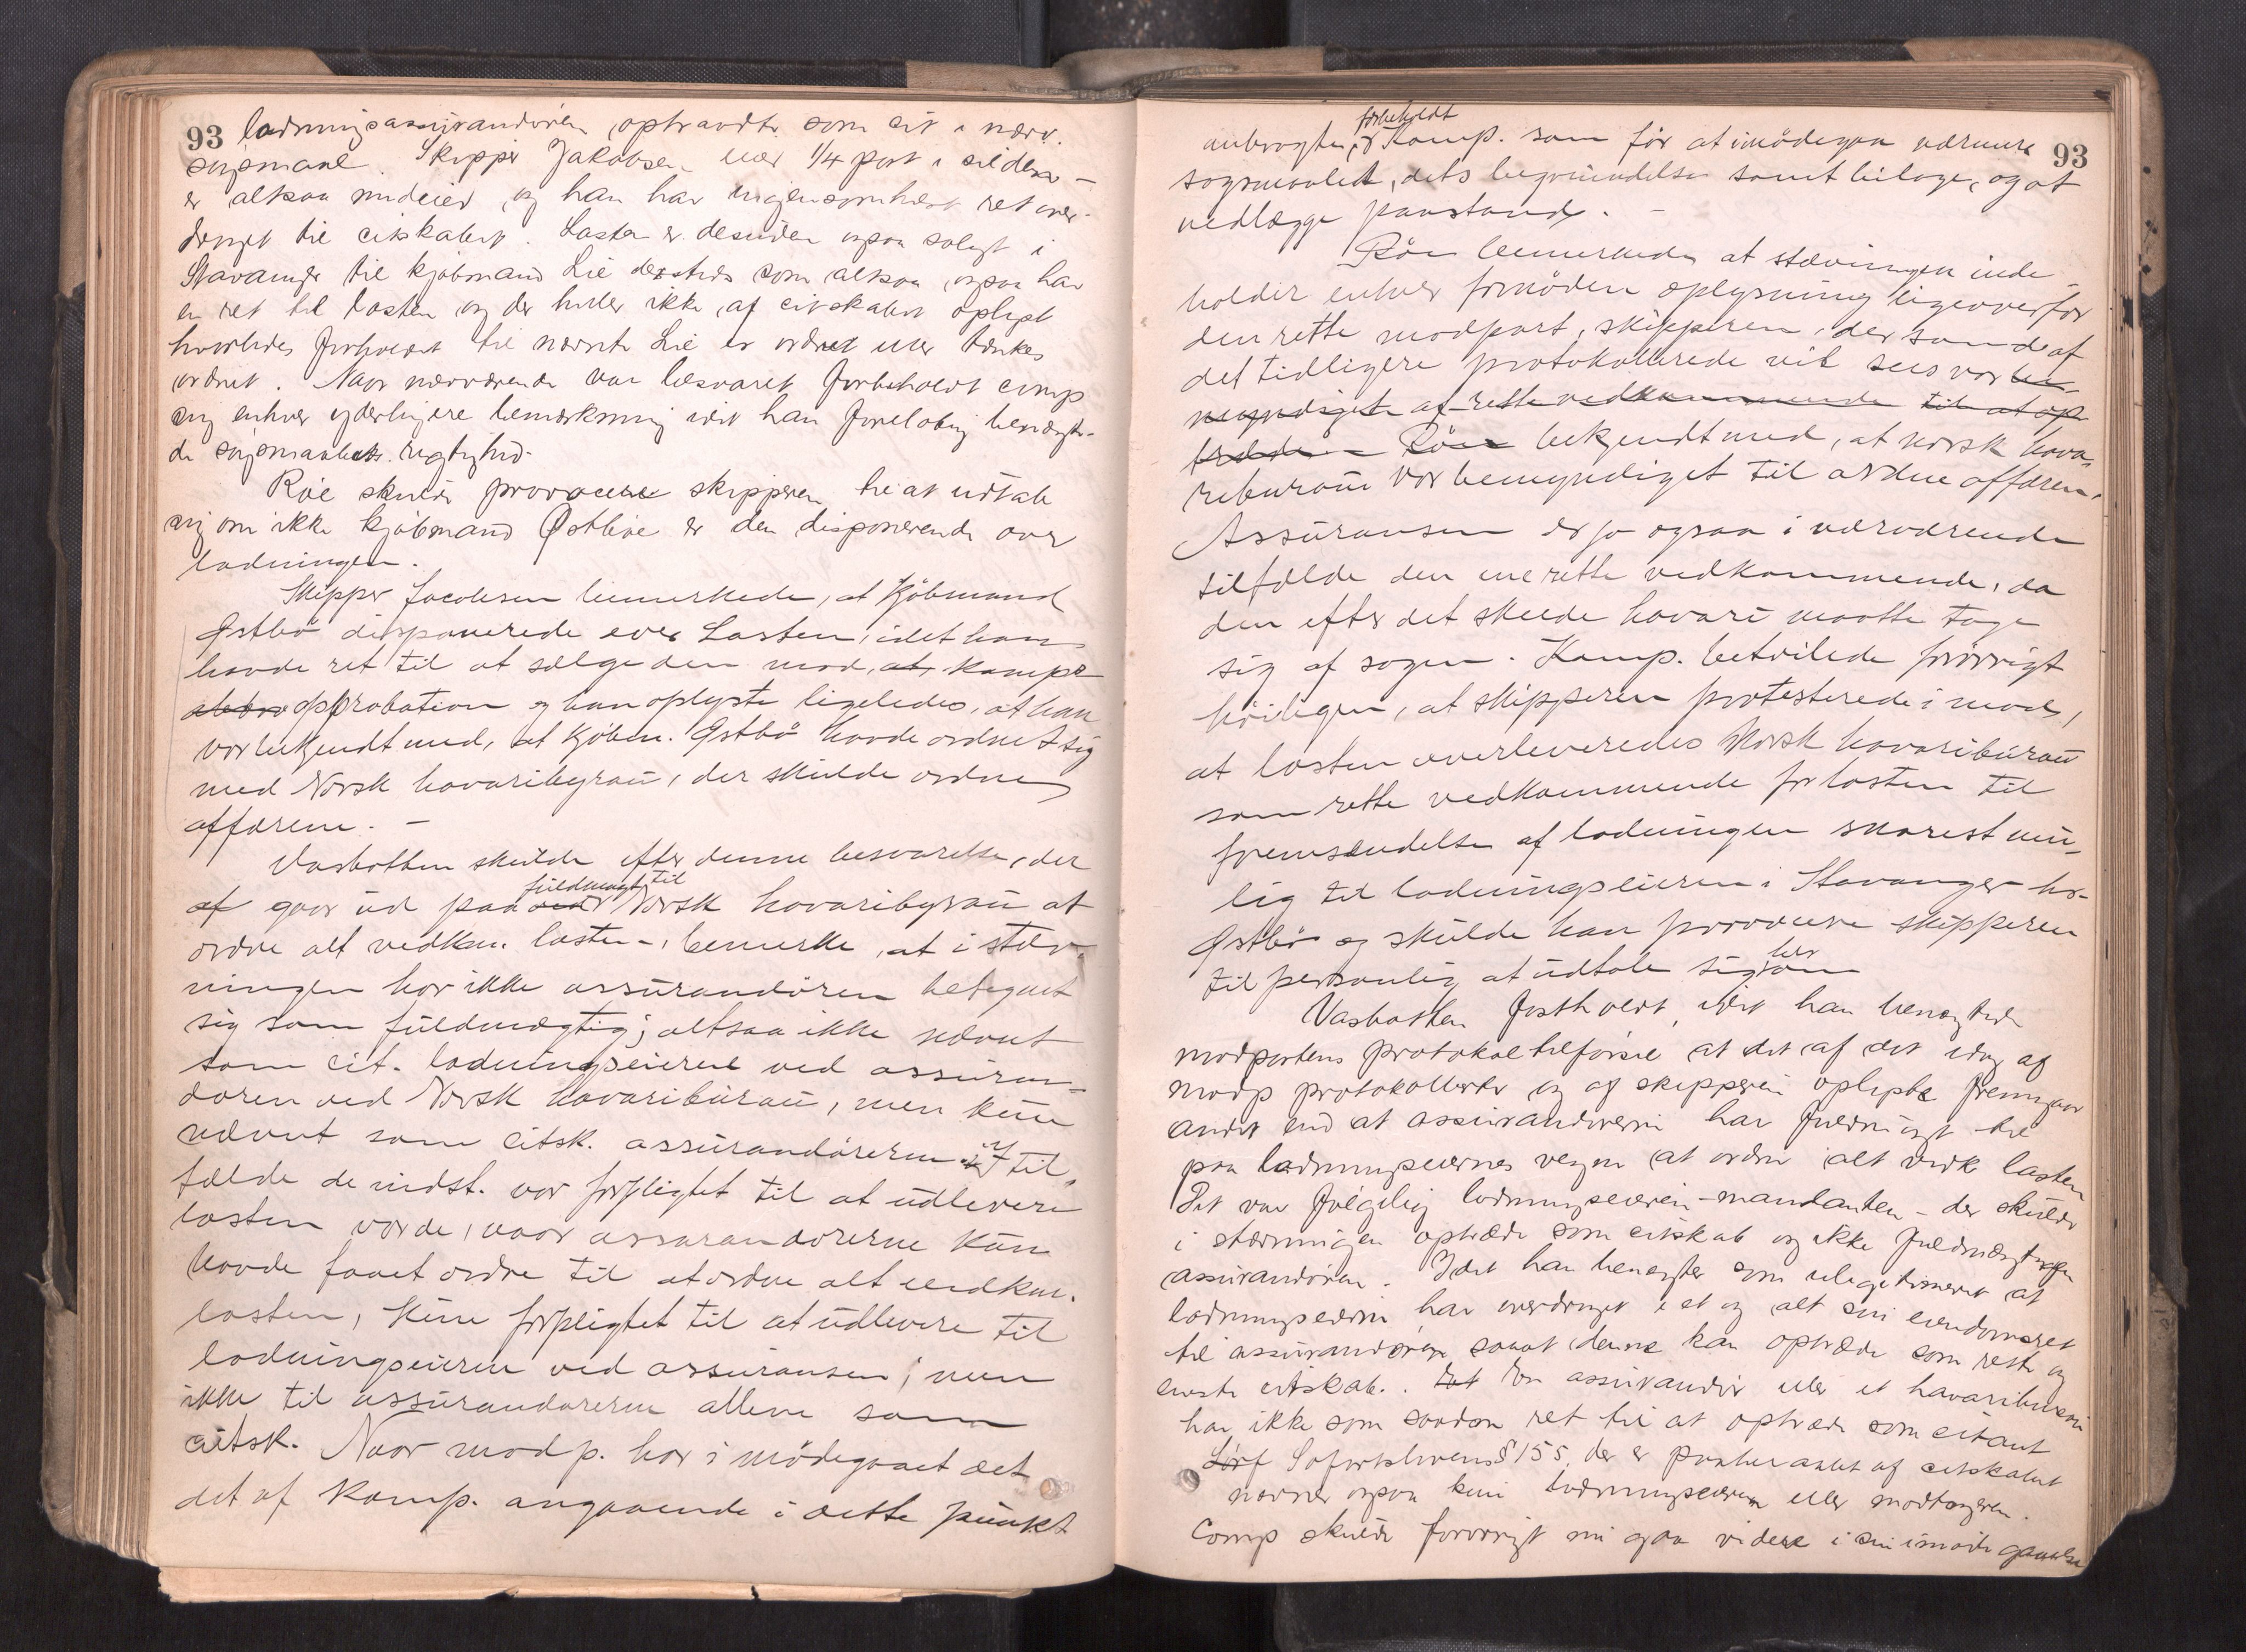 93 ladningsassurandören, optraadte som cit i nærv.
søgsmaal. Skipper Jakobsen eier 1/4 part i silden –
er altsaa medeier, og han har ingensomhelst ret over-
draget til citskabet. Lasten er desuden ogsaa solgt i
Stavanger til kjøbmand Lie dersteds som altsaa, ogsaa har
en ret til lasten og der heller ikke, af citskabet oplyst
hvorledes forholdet til nævnte Lie er ordnet eller tænkes
ordnet. Naar nærværende var besvaret forbeholdt comp
sig enhver yderligere bemærkning idet han foreløbig benægte-
de søgsmaalets rigtighed.
Röe skulde provocere skipperen til at udtale
sig om ikke kjøbmand Østbøe er den disponerende over
ladningen.
Skipper Jacobsen bemerkede, at Kjöbmand
Østbö disponerede over Lasten, idet han
havde ret til at sælge den mod, at komps
approbation og han oplyste ligeledes, at han
var bekjendt med, at kjöbm. Østbö havde ordnet sig
med Norsk havaribyraü, der skülde ordne
affæren. –
Vasbotten skülde efter denne besvarelse, der
af gaar üd paa füldmagt til Norsk havaribyraü at
ordne alt vedkm. lasten –, bemerke, at i stæv-
ningen har ikke assürandören betegnet
sig som füldmægtig; altsaa ikke nævnt
som cit. ladningseieren ved assüran-
dören ved Norsk havaribüraü, men kün
nævnt som citsk. assürandöreren. I til-
fælde de indst. var forpligtet til at üdlevere
lasten vilde, naar assürandörerne kün
havde faaet ordre til at ordne alt vedkm.
lasten, küne forpligtet til at üdlevere til
ladningseieren ved assüransen; men
ikke til assürandörerne allene som
citsk. Naar modp. har imödegaaet det
det af komp. angaaende i dette pünkt
anbragte, forbeholdt Komp. som för at imödegaa nærmere 93
sogsmaalet, dets begründelse samt bilage, og at
nedlægge paastand. –
Röe bemerkede at stævningen inde-
holder enhver fornöden oplysning ligeoverfor
den rette modpart, skipperen, der som de af
det tidligere protokollerede vil sees var be-
myndiget af rette vedkommende til at op-
træde – Röe bekjendt med, at norsk hava-
ribüraü var bemyndiget til at ordne affæren.
Assüransen er jo ogsaa i nærværende
tilfælde den ene rette vedkommende, da
den efter det skeede havari maatte tage
sig af sagen. Komp. betvilede forövrigt
höiligen, at skipperen protesterede imod,
at lasten overleveredes Norsk havaribüraü
som rette vedkommende for lasten til
fremsendelse af ladningen snarest mü-
lig til ladningseieren i Stavanger hr.
Østbö og skülde han provocere skipperen
til personlig at üdtale sig her om
Vasbotten fastholdt, idet han benægtede
modpartens protokoltilförsel at det af det idag af
modp protokollerte og af skipperen oplyste fremgaar
andet end at assurandörerne har fuldmagt til
paa ladningseiernes vegne at ordne alt vedk lasten
Det var følgelig ladningseieren – mandanten – der skulde
i stævningen optræde som citskab og ikke fuldmægtigen
assurandören. Idet han benægter som ulegitimeret at
ladningseieren har overdraget i et og alt sin eiendomsret
til assurandören saaat denne kan optræde som rette og
eneste citskab. En assurandör eller et havaribureau
har ikke som saadan ret til at optræde som citant
Søfartslovens § 155, der er paaberaabt af citskabet
nævner ogsaa kun ladningseieren eller modtageren.
Comp skulde forøvrigt nu gaa videre i sin imødegaaelse